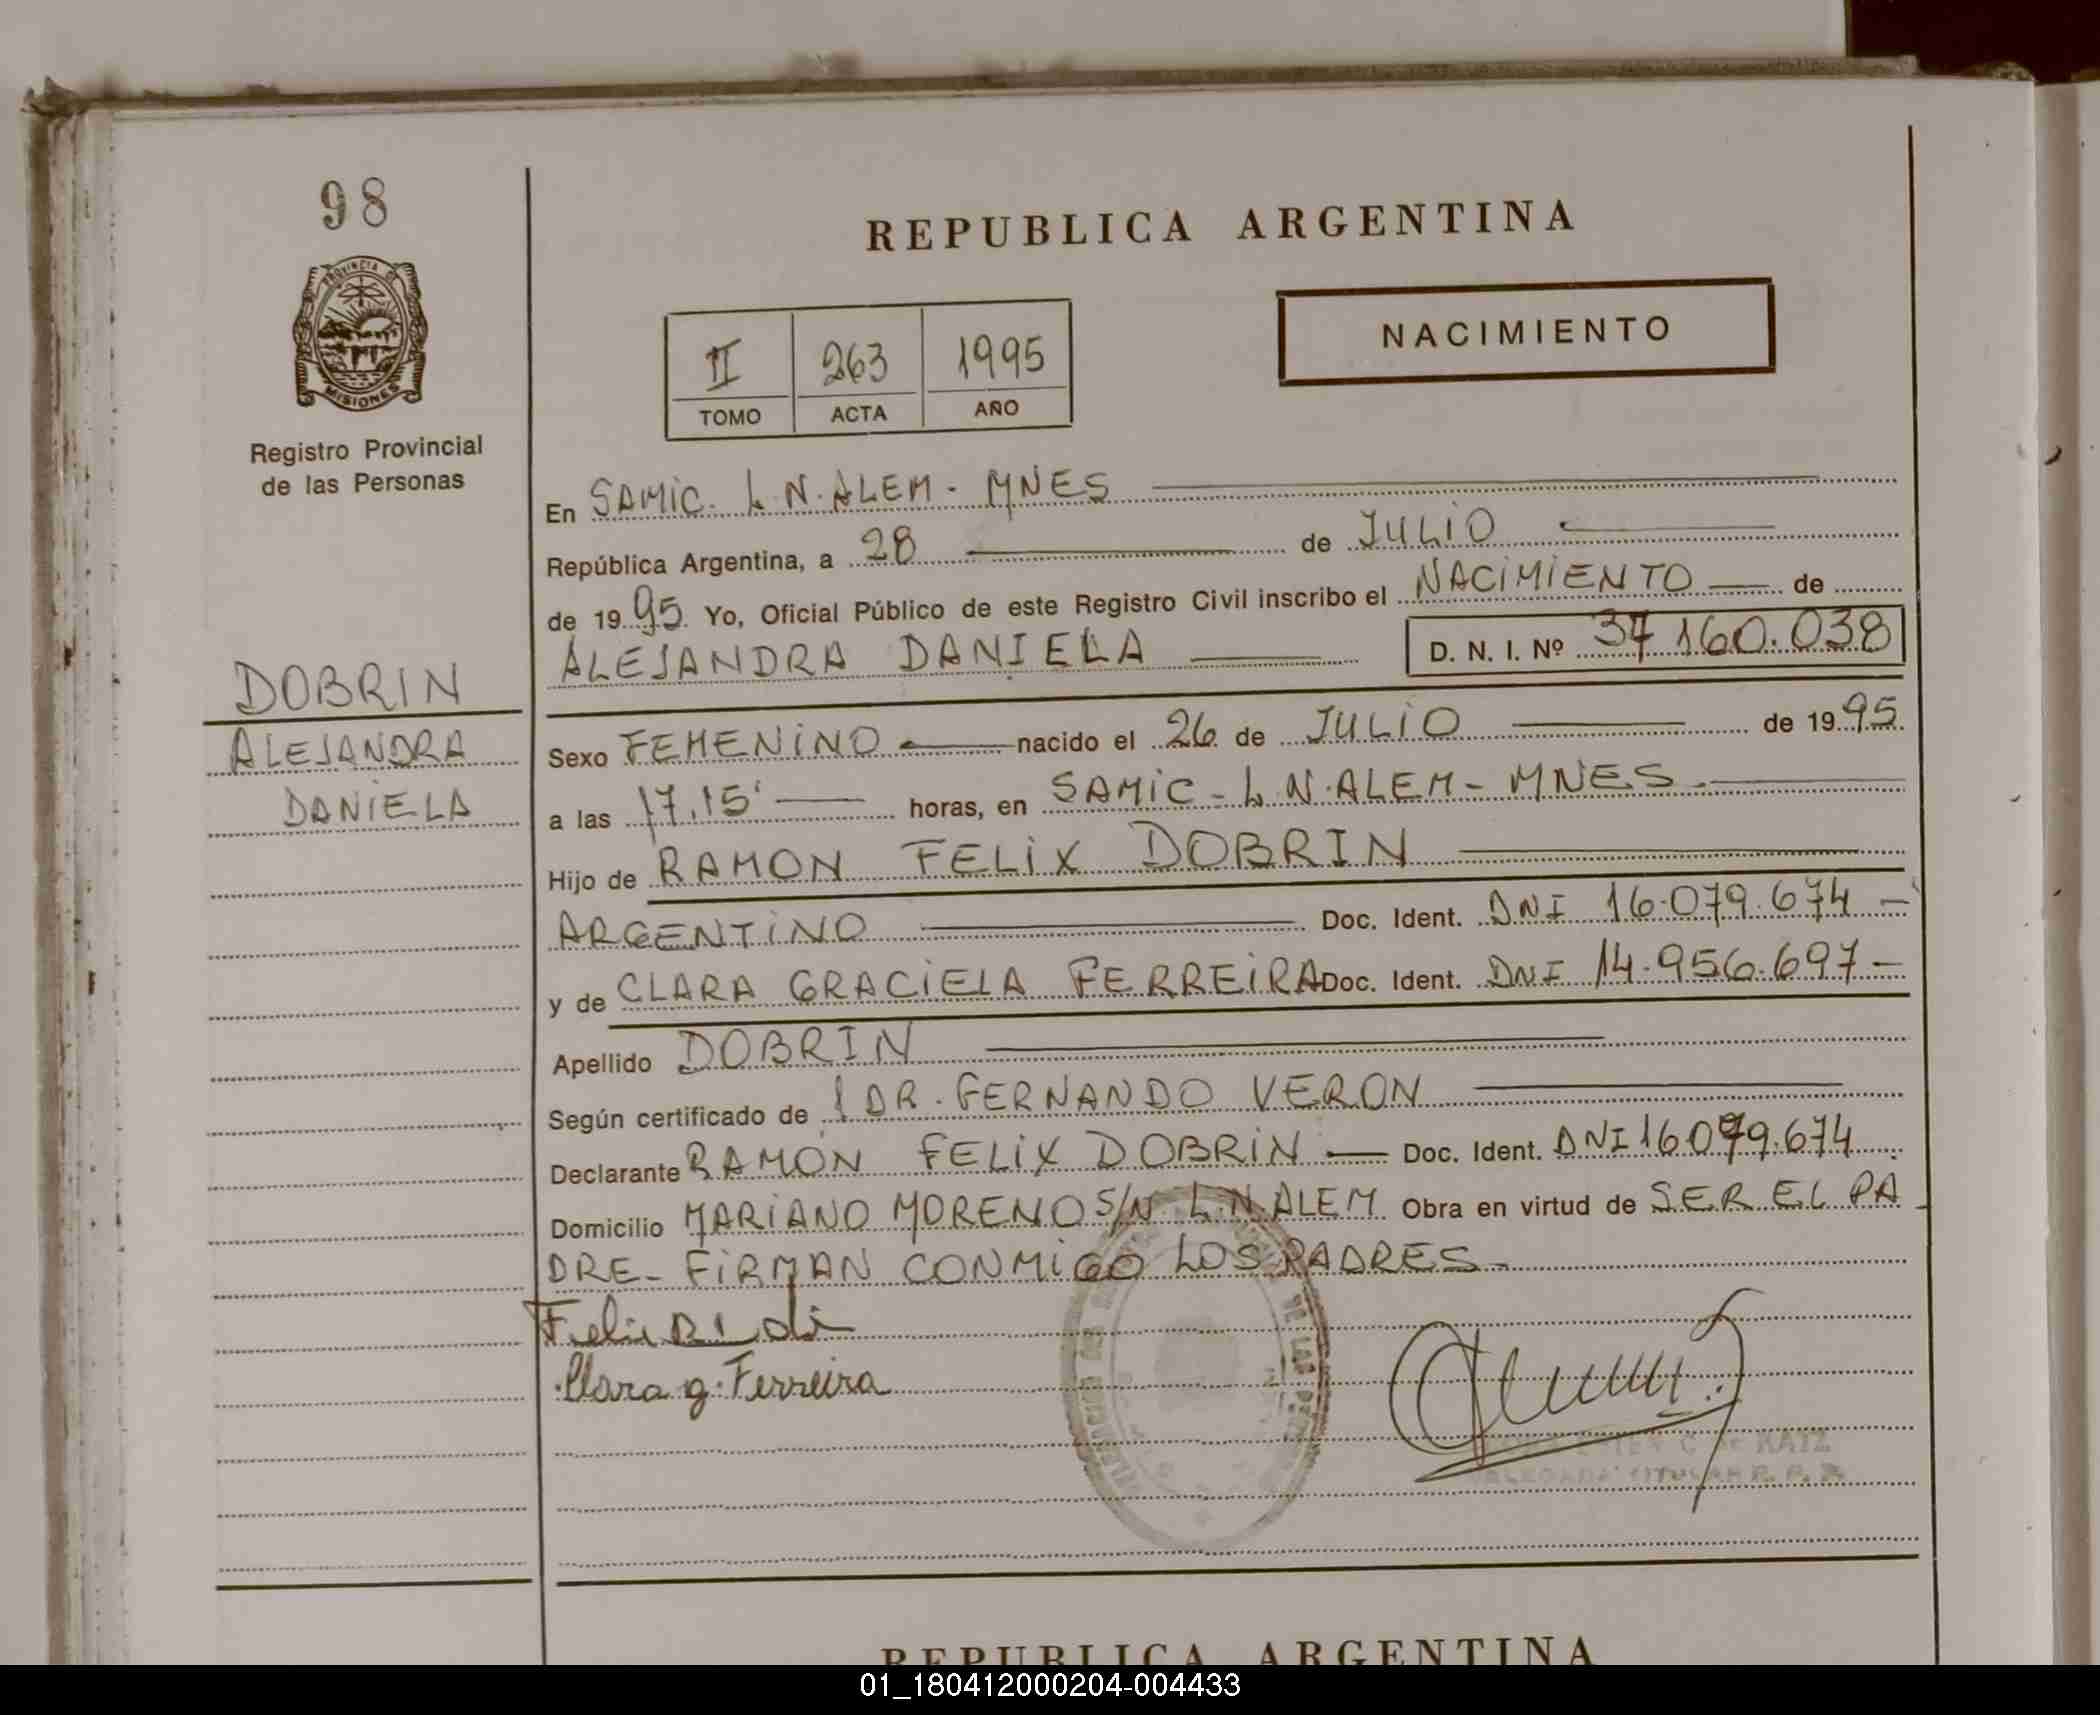 98
PROVINCIA DE
MISIONES
Registro Provincial
de las Personas
DOBRIN
ALEJANDRA
DANIELA
REPUBLICA ARGENTINA
NACIMIENTO
II 263 1995
TOMO ACTA AÑO
En SAMIC. L. N. ALEM - MNES
República Argentina, a 28 de JULIO
de 1995 Yo, Oficial Público de este Registro Civil inscribo el NACIMIENTO de
ALEJANDRA DANIELA D. N. I. Nº 37 160.038
Sexo FEMENINO nacido el 26 de JULIO de 1995
a las 17,15' horas, en SAMIC - L. N. ALEM - MNES -
Hijo de RAMON FELIX DOBRIN
ARGENTINO Doc. Ident. DNI 16.079.674 -
y de CLARA GRACIELA FERREIRA Doc. Ident. DNI 14.956.697 -
Apellido DOBRIN
Según certificado de 1 DR. FERNANDO VERON
Declarante RAMON FELIX DOBRIN - Doc. Ident. DNI 16079.674
Domicilio MARIANO MORENO S/N L.N. ALEM Obra en virtud de SER EL PA
DRE - FIRMAN CONMIGO LOS PADRES -
Clara g. Ferreira
REPUBLICA ARGENTINA
01_180412000204-004433